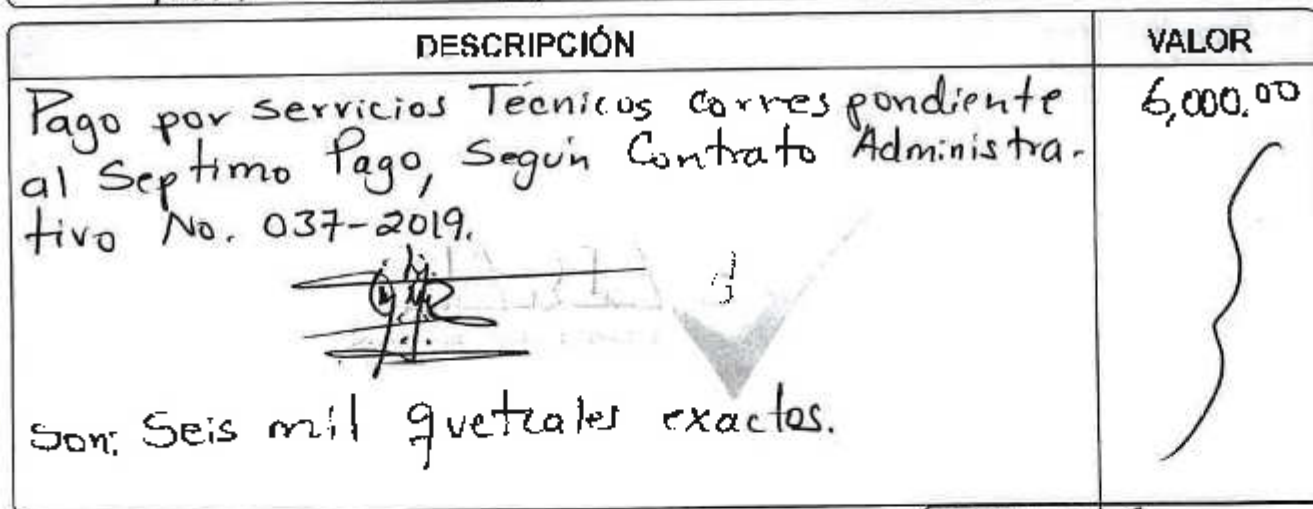 DESCRIPCIÓN VALOR
Pago por servicios Técnicos corres pondiente 6,000.00
al Septimo Pago, Según Contrato Administra-
tivo No. 037-2019.
Son: Seis mil quetzales exactos.